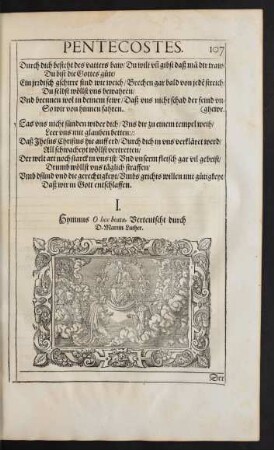 PENTECOSTES. 197
Durch dich besteht des vatters haw/ Du wilt vñ gibst daß mã dir traw
Du bist die Gottes güte/
Ein jrrdisch gschirre sind wir weich/ Brechen gar bald von jedē streich
Du selbst wöllst vns bewahren/
Vnd brennen wol in deinem fewr/ Daß vns nicht schad der feind vn
So wir von hinnen fahren. (ghewr.
Las vns nicht sünden wider dich/ Vns dir zu einem tempel weih/
Leer vns mit glauben betten/
Daß Jhesus Christus hie auff erd/ Durch dich in vns verklärt werd/
All schwacheyt wöllst vertretten/
Der welt art noch starck in vns ist/ Vnd vnserm fleisch gar vil gebrist/
Drumb wöllst vns täglich straffen/
Vmb d'sünd vnd die gerechtigkeyt/ Vmbs grichts willen mit gütigkeyt
Daß wir in Gott entschlaffen.
I.
Hymnus O lux beata, Verteutscht durch
D. Martin Luther.
Der